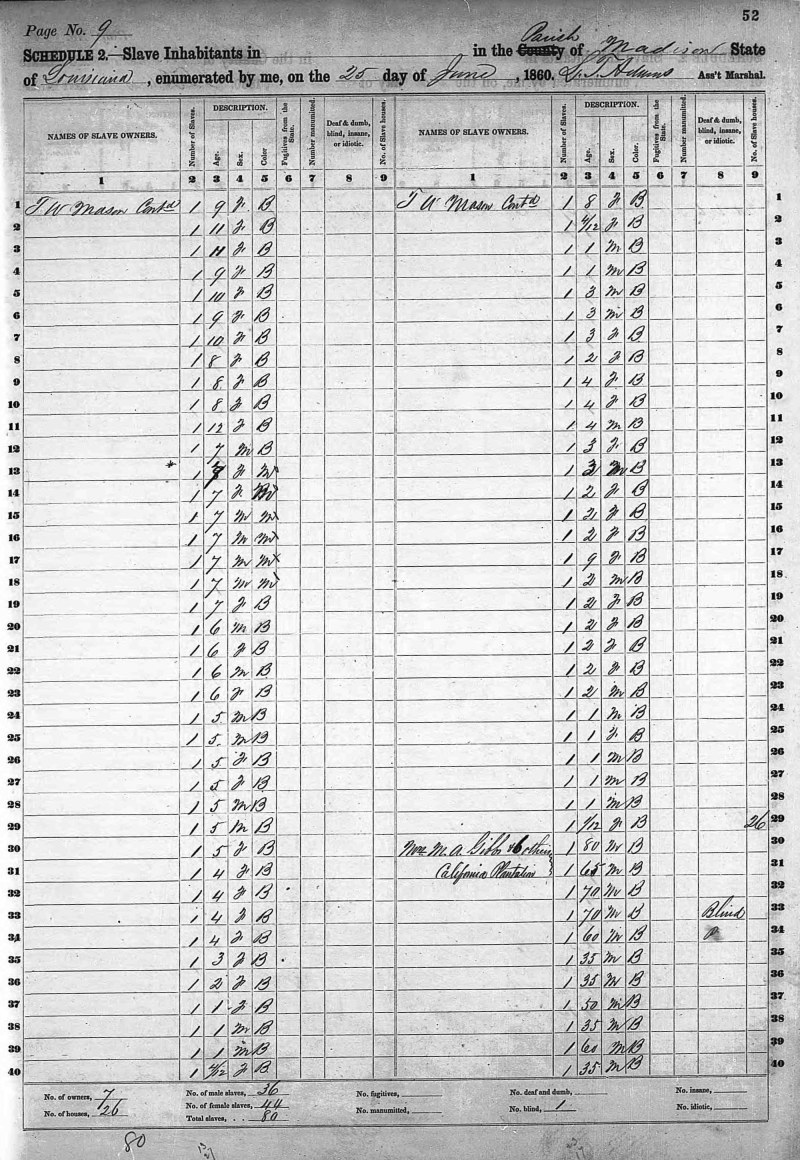 52
Page No. 9
SCHEDULE 2.—Slave Inhabitants in in the County Parish of Madison State
of Louisiana, enumerated by me, on the 25 day of June, 1860. Ass't Marshal.
NAMES OF SLAVE OWNERS. Number of Slaves. DESCRIPTION. Age. Sex. Color Fugitives from the State. Number manumitted. Deaf & dumb, blind, insane, or idiotic. No. of Slave houses. NAMES OF SLAVE OWNERS. Number of Slaves. DESCRIPTION. Age. Sex. Color. Fugitives from the State. Number manumitted. Deaf & dumb, blind, insane, or idiotic. No. of Slave houses.
1 2 3 4 5 6 7 8 9 1 2 3 4 5 6 7 8 9
1 T W Mason Contd 1 9 F B T W Mason Contd 1 8 F B 1
2 1 11 F B 1 4/12 F B 2
3 1 11 F B 1 1 M B 3
4 1 9 F B 1 1 M B 4
5 1 10 F B 1 3 M B 5
6 1 9 F B 1 3 M B 6
7 1 10 F B 1 3 F B 7
8 1 8 F B 1 2 F B 8
9 1 8 F B 1 4 F B 9
10 1 8 F B 1 4 F B 10
11 1 12 F B 1 4 M B 11
12 1 7 M B 1 3 F B 12
13 1 F M 1 3 M B 13
14 1 7 F 1 2 F B 14
15 1 7 M M 1 2 F B 15
16 1 7 M M 1 2 F B 16
17 1 7 M M 1 9 F B 17
18 1 7 M M 1 2 M B 18
19 1 7 F B 1 2 F B 19
20 1 6 M B 1 2 F B 20
21 1 6 F B 1 2 F B 21
22 1 6 M B 1 2 F B 22
23 1 6 F B 1 2 M B 23
24 1 5 M B 1 1 M B 24
25 1 5 M B 1 1 F B 25
26 1 5 F B 1 1 M B 26
27 1 5 F B 1 1 M B 27
28 1 5 M B 1 1 M B 28
29 1 5 M B 1 F B 26 29
30 1 5 F B M. A. Gibbs 1 80 M B 30
31 1 4 F B California Plantation 1 65 M B 31
32 1 4 F B 1 70 M B 32
33 1 4 F B 1 70 M B Blind 33
34 1 4 F B 1 60 M B 34
35 1 3 F B 1 35 M B 35
36 1 2 F B 1 35 M B 36
37 1 1 F B 1 50 M B 37
38 1 1 M B 1 35 M B 38
39 1 1 M B 1 60 M B 39
40 1 F B 1 35 M B 40
No. of owners, 7 No. of male slaves, 36 No. fugitives, No. deaf and dumb, No. insane,
No. of houses, 26 No. of female slaves, 44 No. manumitted, No. blind, 1 No. idiotic,
Total slaves, 80
80